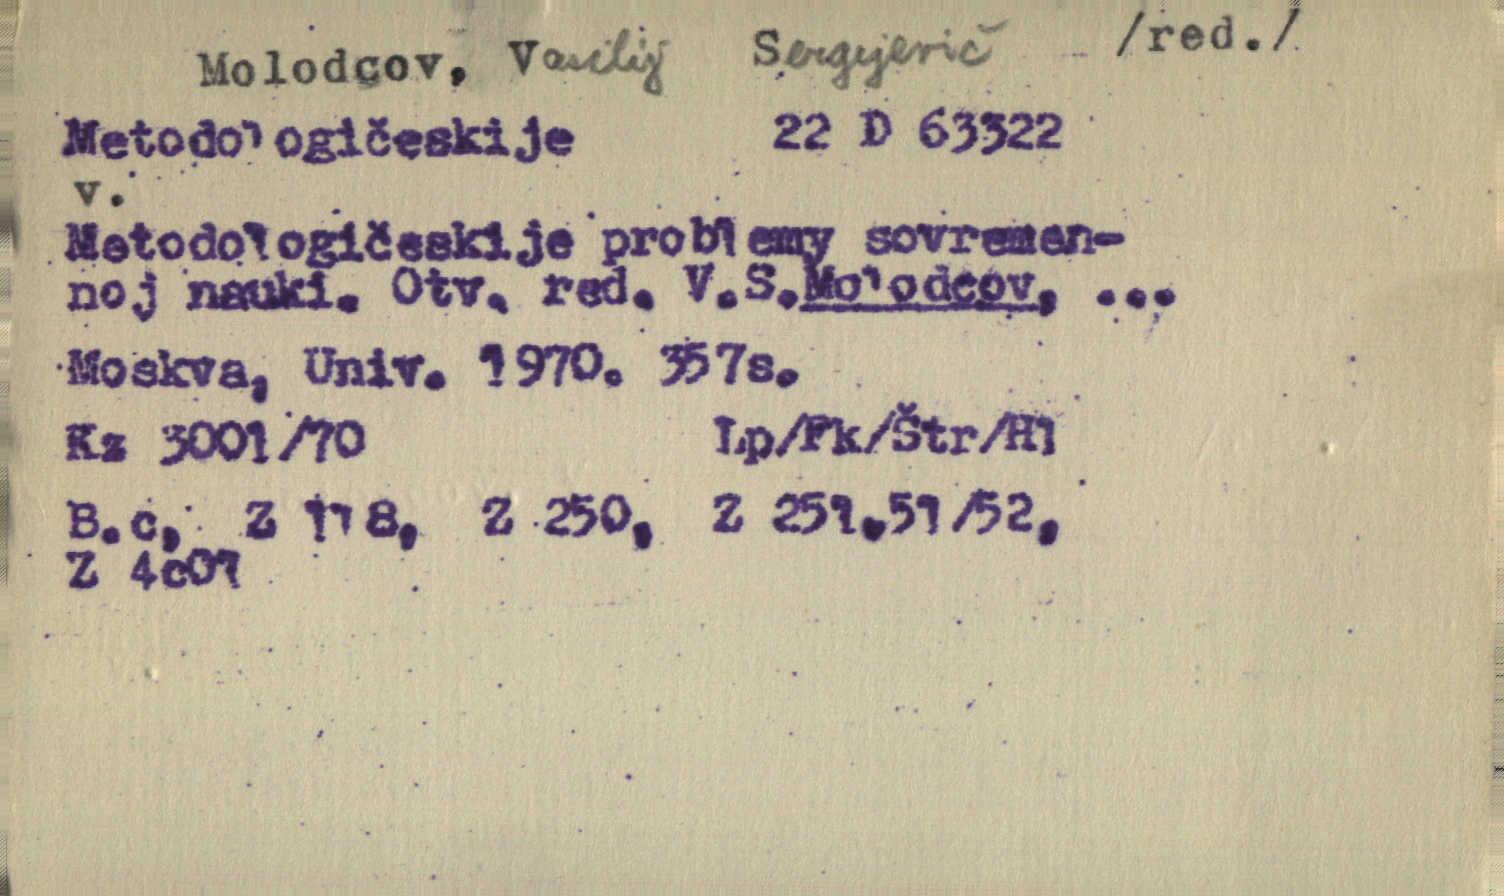 Molodcov, Vasilij Sergejevič /red./
Metodologičeskije 22 D 63322
v.
Metodologičeskije problemy sovremen-
noj nauki. Otv. red. V.S.Molodcov, ...
Moskva, Univ. 1970. 357s.
Kz 3001/70 Lp/Fk/Štr/Hl
B.c, Z 118, Z 250, Z 251.51/52,
Z 4c01